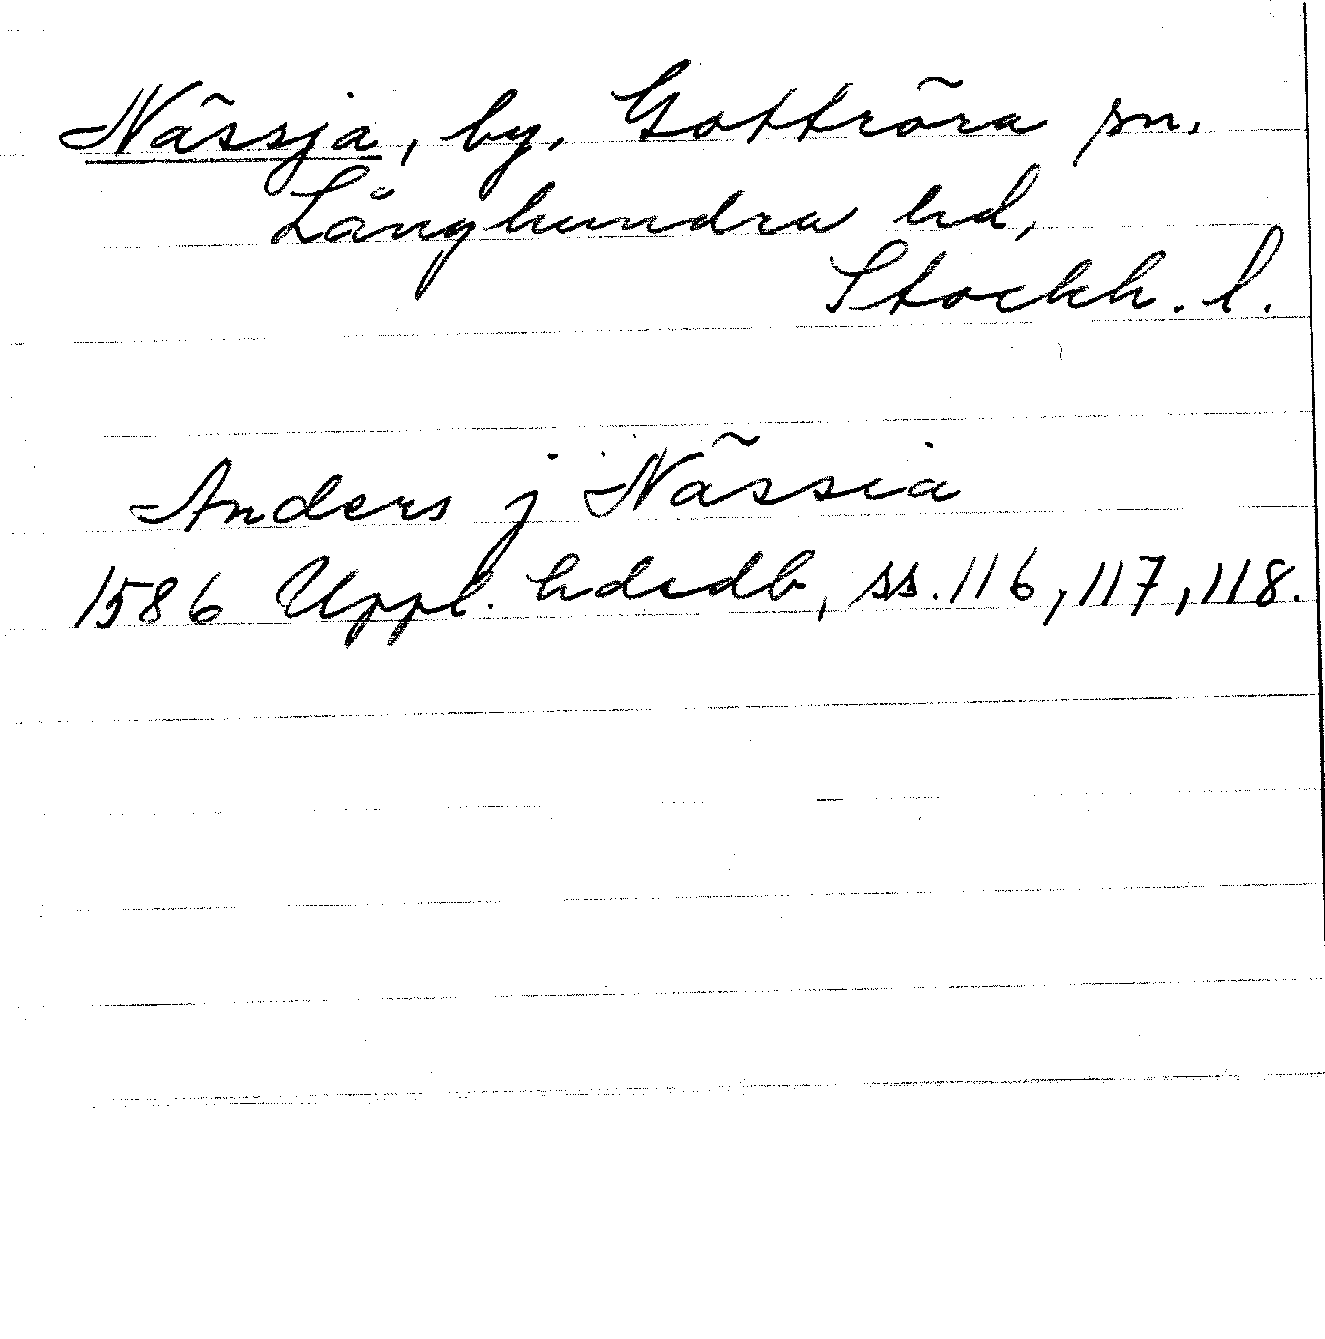 Nässja, by, Gottröra sn.
Långhundra hd,
Stockh. l.
Anders j Nässia
1586 Uppl. hdsdb, ss. 116, 117, 118.